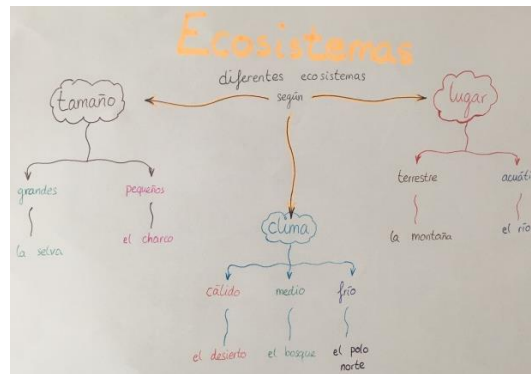 Ecosistemas
diferentes ecosistemas
según
tamaño
lugar
grandes
pequeños
terrestre
acuáti
la selva
el charco
la montaña
el río
clima
cálido
medio
frío
el desierto
el bosque
el polo
norte